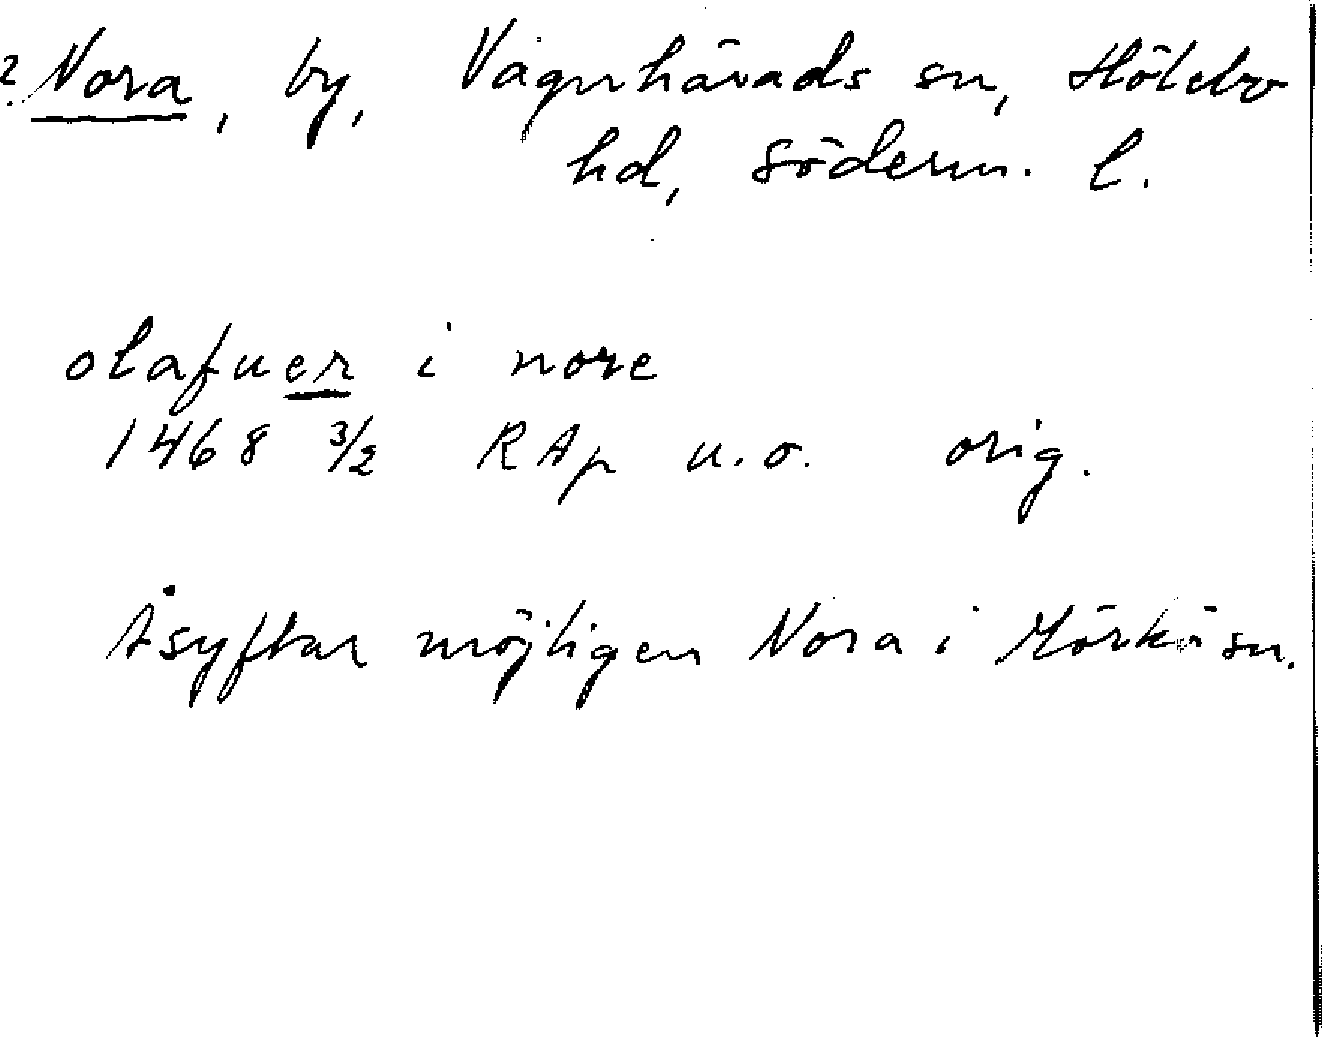 ? Nora, by, Vagnhärads sn, Hölebo
hd, Söderm. l.
olafuer i nore
1468 3/2 RAp u.o. orig.
Åsyftar möjligen Nora i Mörkö sn.